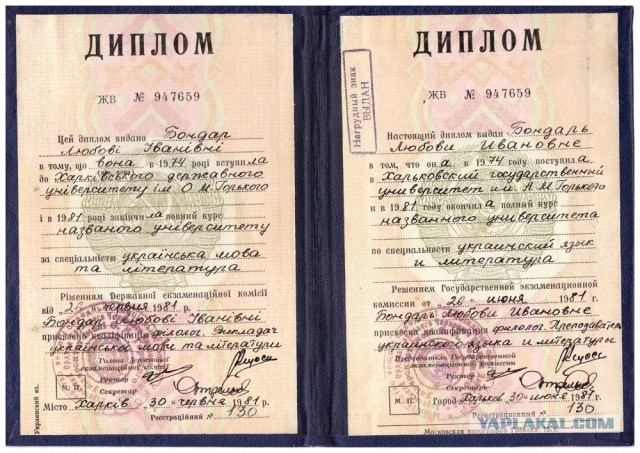 ДИПЛОМ
ЖВ № 947659
Цей диплом видано Бондар
Любові Іванівні
в тому, що вона в 1974 році вступила
до Харківського державного
університету ім. О.М.Горького
і в 1981 році закінчила повний курс
названого університету
за спеціальністю українська мова
та література
Рішенням Державної екзаменаційної комісії
від 26 червня 1981 р.
Бондар Любові Іванівні
присвоєно кваліфікацію філолог. Викладач
української мови та літератури
Голова Державної
екзаменаційної комісії
Ректор
Секретар
М. П.
Місто Харків „30“ червня 1981 р.
Реєстраційний № 130
Украинский яз.
ДИПЛОМ
ЖВ № 947659
Нагрудный знак
ВЫДАН
Настоящий диплом выдан Бондарь
Любови Ивановне
в том, что она в 1974 году поступила
в Харьковский государственный
университет им. А.М.Горького
и в 1981 году окончила полный курс
названного университета
по специальности украинский язык
и литература
Решением Государственной экзаменационной
комиссии от 26 июня 1981 г.
Бондарь Любови Ивановне
присвоена квалификация филолог. Преподаватель
украинского языка и литературы
Председатель Государственной
экзаменационной комиссии
Ректор
Секретарь
М. П.
Город Харьков 30 июня 1981 г.
Регистрационный № 130
Московская типография Гознака.
YAPLAKAL.COM